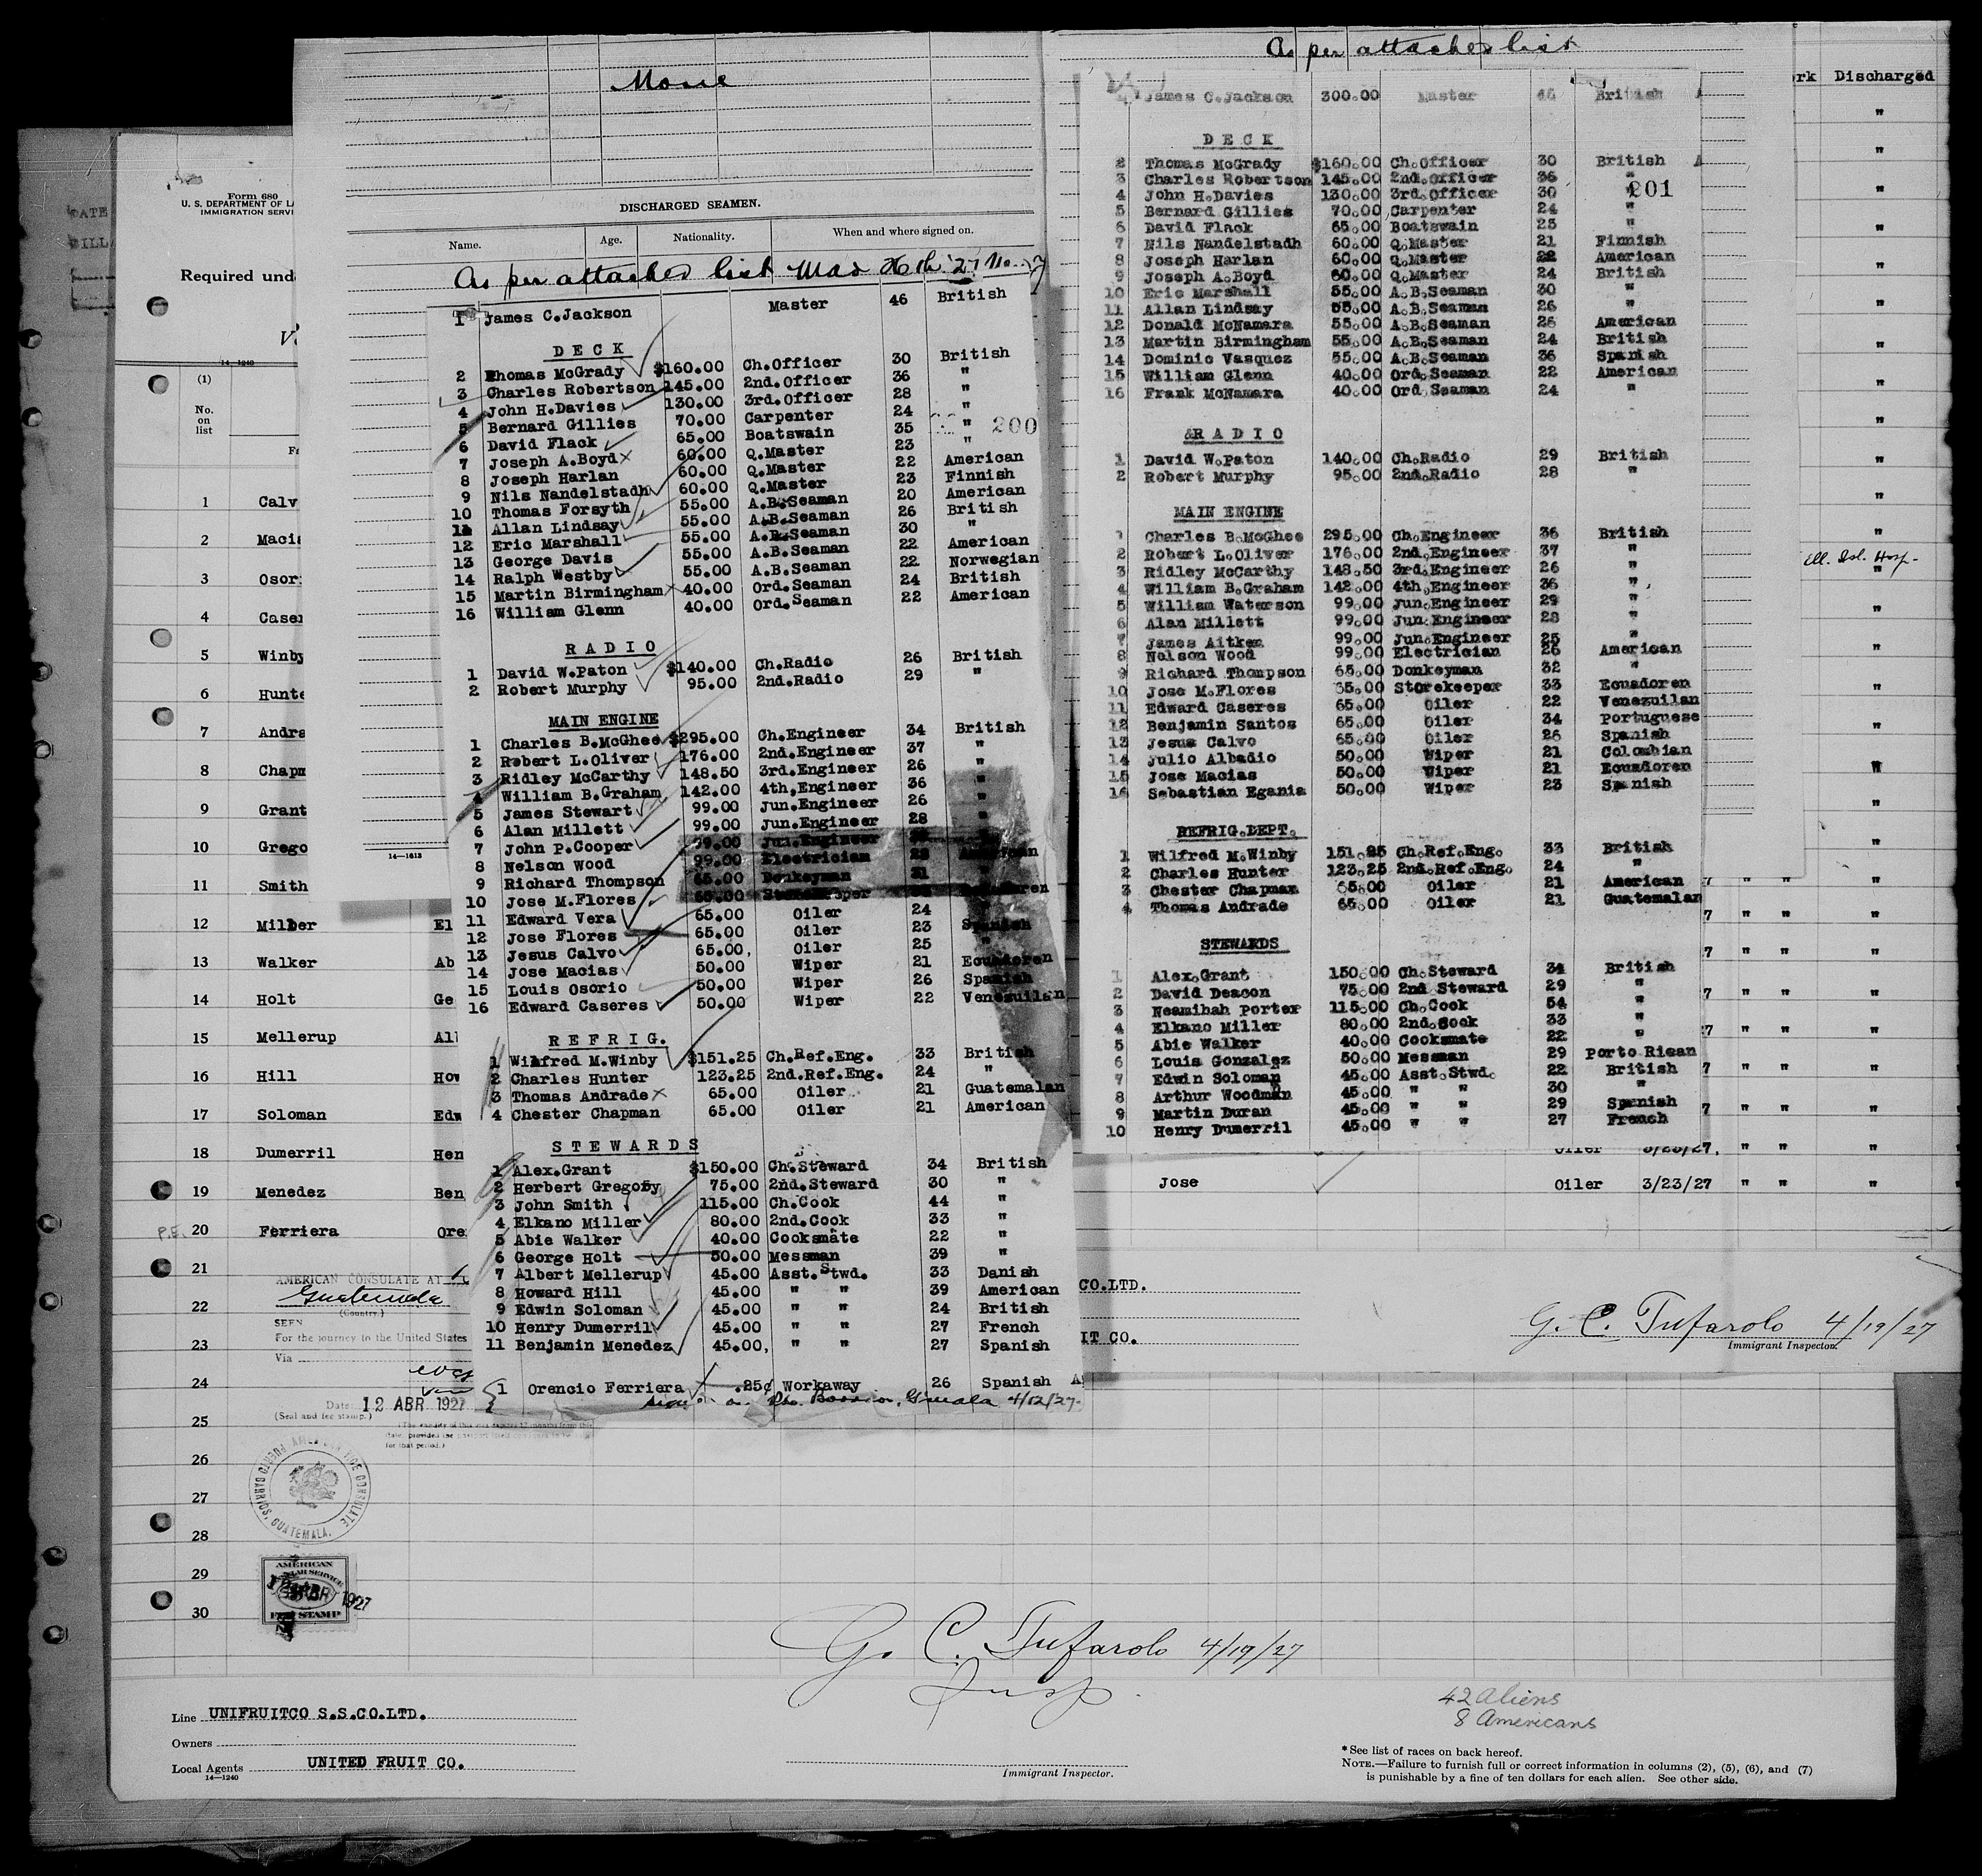 As per attached list
None
rk Discharged
Form 680
U. S. DEPARTMENT OF LA
IMMIGRATION SERVI
Required und
14—1240
(1)
No.
on
list
1 Calv
2 Macia
3 Osori
4 Caser
5 Winby
6 Hunte
7 Andra
8 Chapm
9 Grant
10 Grego
11 Smith
12 Milber El
13 Walker Ab
14 Holt Ge
15 Mellerup Al
16 Hill How
17 Soloman Edw
18 Dumerril Hen
19 Menedez Ben
P.E. 20 Ferriera Ore
21
22
23
24
25
26
27
28
29
30
AMERICAN CONSULATE AT
Guatemala
(Country.)
SEEN
For the journey to the United States
Via
Date 12 ABR 1927
(Seal and fee stamp.)
for that period.)
PUERTO BARRIOS, GUATEMALA.
AMERICAN
FEE STAMP
1927
DISCHARGED SEAMEN.
Name. Age. Nationality. When and where signed on.
As per attached list Mar 26th '27
1 James C.Jackson Master 46 British
DECK
2 Thomas McGrady $160.00 Ch.Officer 30 British
3 Charles Robertson 145.00 2nd.Officer 36 "
4 John H.Davies 130.00 3rd.Officer 28 "
5 Bernard Gillies 70.00 Carpenter 24 "
6 David Flack 65.00 Boatswain 35 " 200
7 Joseph A.Boyd 60.00 Q.Master 23 "
8 Joseph Harlan 60.00 Q.Master 22 American
9 Nils Nandelstadh 60.00 Q.Master 23 Finnish
10 Thomas Forsyth 55.00 A.B.Seaman 20 American
11 Allan Lindsay 55.00 A.B.Seaman 26 British
12 Eric Marshall 55.00 A.B.Seaman 30 "
13 George Davis 55.00 A.B.Seaman 22 American
14 Ralph Westby 55.00 A.B.Seaman 22 Norwegian
15 Martin Birmingham 40.00 Ord.Seaman 24 British
16 William Glenn 40.00 Ord.Seaman 22 American
RADIO
1 David W.Paton $140.00 Ch.Radio 26 British
2 Robert Murphy 95.00 2nd.Radio 29 "
MAIN ENGINE
1 Charles B.McGhee $295.00 Ch.Engineer 34 British
2 Robert L.Oliver 176.00 2nd.Engineer 37 "
3 Ridley McCarthy 148.50 3rd.Engineer 26 "
4 William B.Graham 142.00 4th,Engineer 36 "
5 James Stewart 99.00 Jun.Engineer 26 "
6 Alan Millett 99.00 Jun.Engineer 28 "
7 John P.Cooper 99.00 Jun.Engineer
8 Nelson Wood 99.00 Electrician American
9 Richard Thompson 65.00 Donkeyman 31
10 Jose M.Flores 65.00 Storekeeper
11 Edward Vera 65.00 Oiler 24
12 Jose Flores 65.00 Oiler 23 Spanish
13 Jesus Calvo 65.00, Oiler 25 "
14 Jose Macias 50.00 Wiper 21 Ecuadoren
15 Louis Osorio 50.00 Wiper 26 Spanish
16 Edward Caseres 50.00 Wiper 22 Venezuilan
REFRIG.
1 Wilfred M.Winby $151.25 Ch.Ref.Eng. 33 British
2 Charles Hunter 123.25 2nd.Ref.Eng. 24 "
3 Thomas Andrade 65.00 Oiler 21 Guatemalan
4 Chester Chapman 65.00 Oiler 21 American
STEWARDS
1 Alex.Grant $150.00 Ch.Steward 34 British
2 Herbert Gregory 75.00 2nd.Steward 30 "
3 John Smith 115.00 Ch.Cook 44 "
4 Elkano Miller 80.00 2nd.Cook 33 "
5 Abie Walker 40.00 Cooksmate 22 "
6 George Holt 50.00 Messman 39 "
7 Albert Mellerup 45.00 Asst.Stwd. 33 Danish
8 Howard Hill 45.00 " " 39 American
9 Edwin Soloman 45.00 " " 24 British
10 Henry Dumerril 45.00 " " 27 French
11 Benjamin Menedez 45.00, " " 27 Spanish
1 Orencio Ferriera .25¢ Workaway 26 Spanish
Sign on Pto. Barrios, G'mala 4/12/27-
14—1613
James C.Jackson 300.00 Master 46 British
DECK
2 Thomas McGrady $160.00 Ch.Officer 30 British
3 Charles Robertson 145.00 2nd.Officer 36 "
4 John H.Davies 130.00 3rd.Officer 30 " 201
5 Bernard Gillies 70.00 Carpenter 24 "
6 David Flack 65.00 Boatswain 25 "
7 Nils Nandelstadh 60.00 Q.Master 21 Finnish
8 Joseph Harlan 60.00 Q.Master 22 American
9 Joseph A.Boyd 60.00 Q.Master 24 British
10 Eric Marshall 55.00 A.B.Seaman 30 "
11 Allan Lindsay 55.00 A.B.Seaman 26 "
12 Donald McNamara 55.00 A.B.Seaman 26 American
13 Martin Birmingham 55.00 A.B.Seaman 24 British
14 Dominic Vasquez 55.00 A.B.Seaman 36 Spanish
15 William Glenn 40.00 Ord.Seaman 22 American
16 Frank McNamara 40.00 Ord.Seaman 24 "
RADIO
1 David W.Paton 140.00 Ch.Radio 29 British
2 Robert Murphy 95.00 2nd.Radio 28 "
MAIN ENGINE
1 Charles B.McGhee 295.00 Ch.Engineer 36 British
2 Robert L.Oliver 176.00 2nd.Engineer 37 "
3 Ridley McCarthy 148.50 3rd.Engineer 26 "
4 William B.Graham 142.00 4th.Engineer 36 "
5 William Waterson 99.00 Jun.Engineer 29 "
6 Alan Millett 99.00 Jun.Engineer 28 "
7 James Aitken 99.00 Jun.Engineer 25 "
8 Nelson Wood 99.00 Electrician 26 American
9 Richard Thompson 65.00 Donkeyman 32 "
10 Jose M.Flores 65.00 Storekeeper 33 Ecuadoren
11 Edward Caseres 65.00 Oiler 22 Venezuilan
12 Benjamin Santos 65.00 Oiler 34 Portuguese
13 Jesus Calvo 65.00 Oiler 26 Spanish
14 Julio Albadio 50.00 Wiper 21 Colombian
15 Jose Macias 50.00 Wiper 21 Ecuadoren
16 Sebastian Egania 50.00 Wiper 23 Spanish
REFRIG.DEPT.
1 Wilfred M.Winby 151.25 Ch.Ref.Eng. 33 British
2 Charles Hunter 123.25 2nd.Ref.Eng. 24 "
3 Chester Chapman 65.00 Oiler 21 American
4 Thomas Andrade 65.00 Oiler 21 Guatemalan
STEWARDS
1 Alex.Grant 150.00 Ch.Steward 34 British
2 David Deacon 75.00 2nd Steward 29 "
3 Neamihah Porter 115.00 Ch.Cook 54 "
4 Elkano Miller 80.00 2nd.Cook 33 "
5 Abie Walker 40.00 Cooksmate 22 "
6 Louis Gonzalez 50.00 Messman 29 Porto Rican
7 Edwin Soloman 45.00 Asst.Stwd. 22 British
8 Arthur Woodman 45.00 " " 30 "
9 Martin Duran 45.00 " " 29 Spanish
10 Henry Dumerril 45.00 " " 27 French
Ell. Isl. Hosp-
Oiler 3/23/27.
Jose Oiler 3/23/27 " " "
CO.LTD.
IT CO.
G. C. Tufarolo 4/19/27
Immigrant Inspector.
G. C. Tufarolo 4/19/27
Insp.
42 aliens
8 Americans
Line UNIFRUITCO S.S.CO.LTD.
Owners
Local Agents UNITED FRUIT CO.
14—1240
Immigrant Inspector.
* See list of races on back hereof.
NOTE.—Failure to furnish full or correct information in columns (2), (5), (6), and (7)
is punishable by a fine of ten dollars for each alien. See other side.